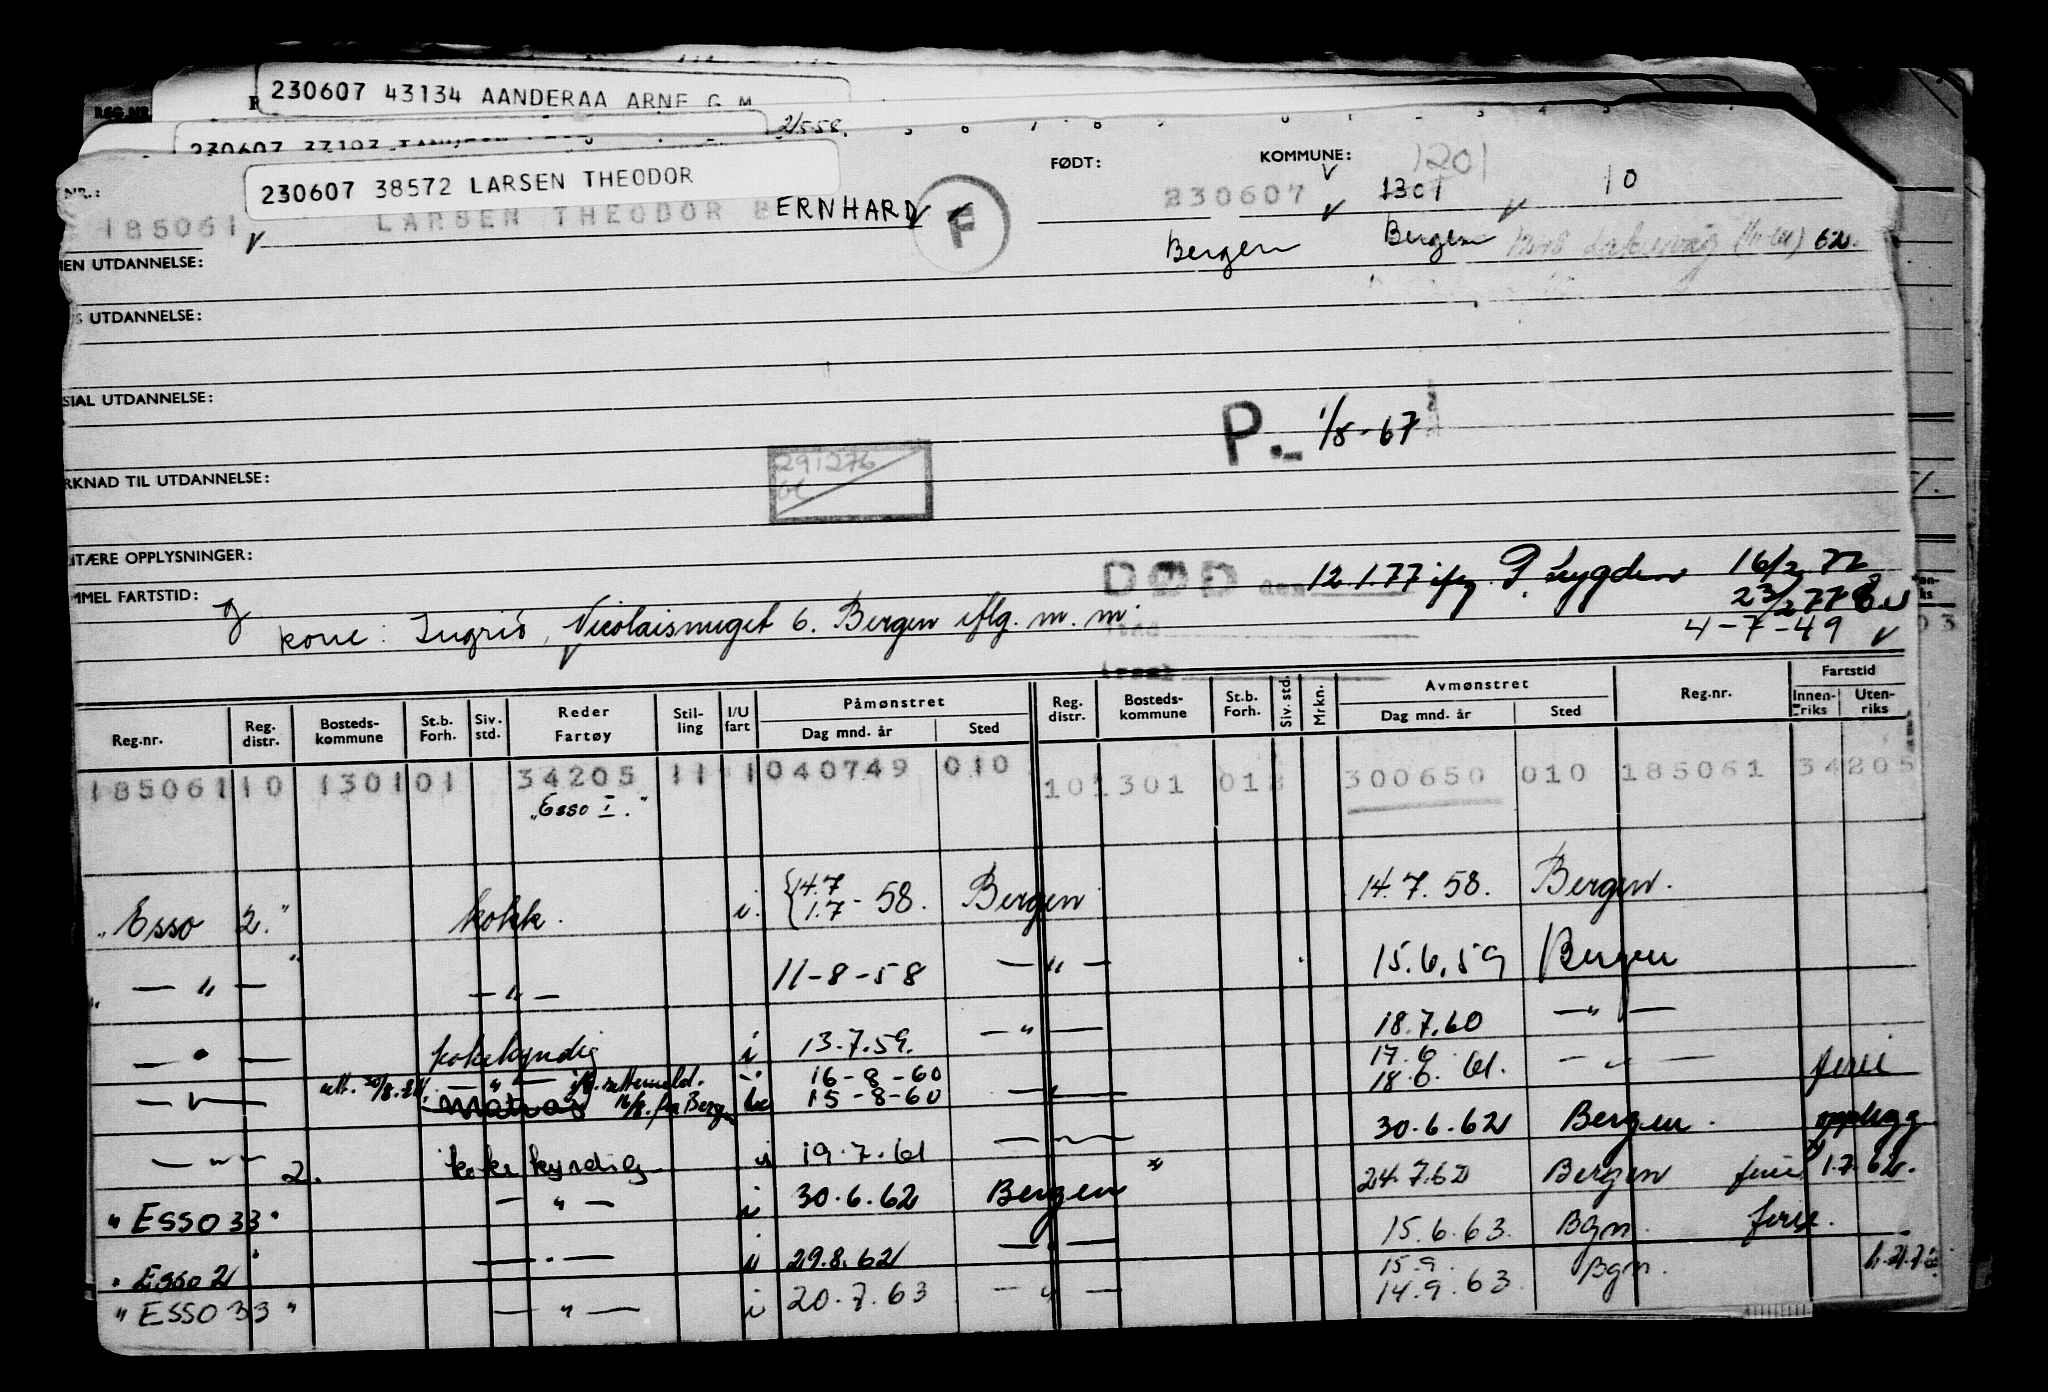 230607 43134 AANDERAA ARNE G M
2/5-58.
230607 38572 LARSEN THEODOR
FØDT:
KOMMUNE:
1201
185061
LARSEN THEODOR BERNHARD
F
230607
1301
10
Bergen
Bergen
62.
MEN UTDANNELSE:
UTDANNELSE:
SIAL UTDANNELSE:
P.- 1/8-67
291276
RKNAD TIL UTDANNELSE:
ITÆRE OPPLYSNINGER:
DØD den 12.1.77 ifg. P.
16/2 77
MMEL FARTSTID:
23/2 77
kone: Ingrid, Nicolaismuget 6. Bergen iflg. m. m.
4-7-49
Reg.nr. Reg. distr. Bosteds-kommune St.b. Forh. Siv. std. Reder Fartøy Stil-ling I/U fart Påmønstret Dag mnd. år Sted Reg. distr. Bosteds-kommune St.b. Forh. Siv. std. Mrkn. Avmønstret Dag mnd. år Sted Reg.nr. Fartstid Innen-riks Uten-riks
185061 10 1301 01 34205 11 1 040749 010 10 1301 01 300650 010 185061 34205
"Esso I."
"Esso 2." kokk. i. {14.7 1.7 - 58. Bergen 14.7.58. Bergen.
" — " — " — " — 11-8-58 — " — 15.6.59 Bergen
— " — kokekyndig i 13.7.59. — " — 18.7.60 — " —
— " — rett. 20/8. — " — ifg. rettemeld. i 16-8-60 17.6 18.6. 61. — " — ferie
16/8. fra Bergen 15-8-60 — " —
— " — 2. kokekyndig i 19.7.61 — " — 30.6.62 Bergen. opplegg
"ESSO 33" — " — i 30.6.62 Bergen 24.7.62 Bergen ferie 1.7.62.
"Esso 2" — " — i 29.8.62 — " — 15.6.63. Bgn. ferie.
"ESSO 33" — " — i 20.7.63 — " — 15.9. 14.9.63. Bgn.